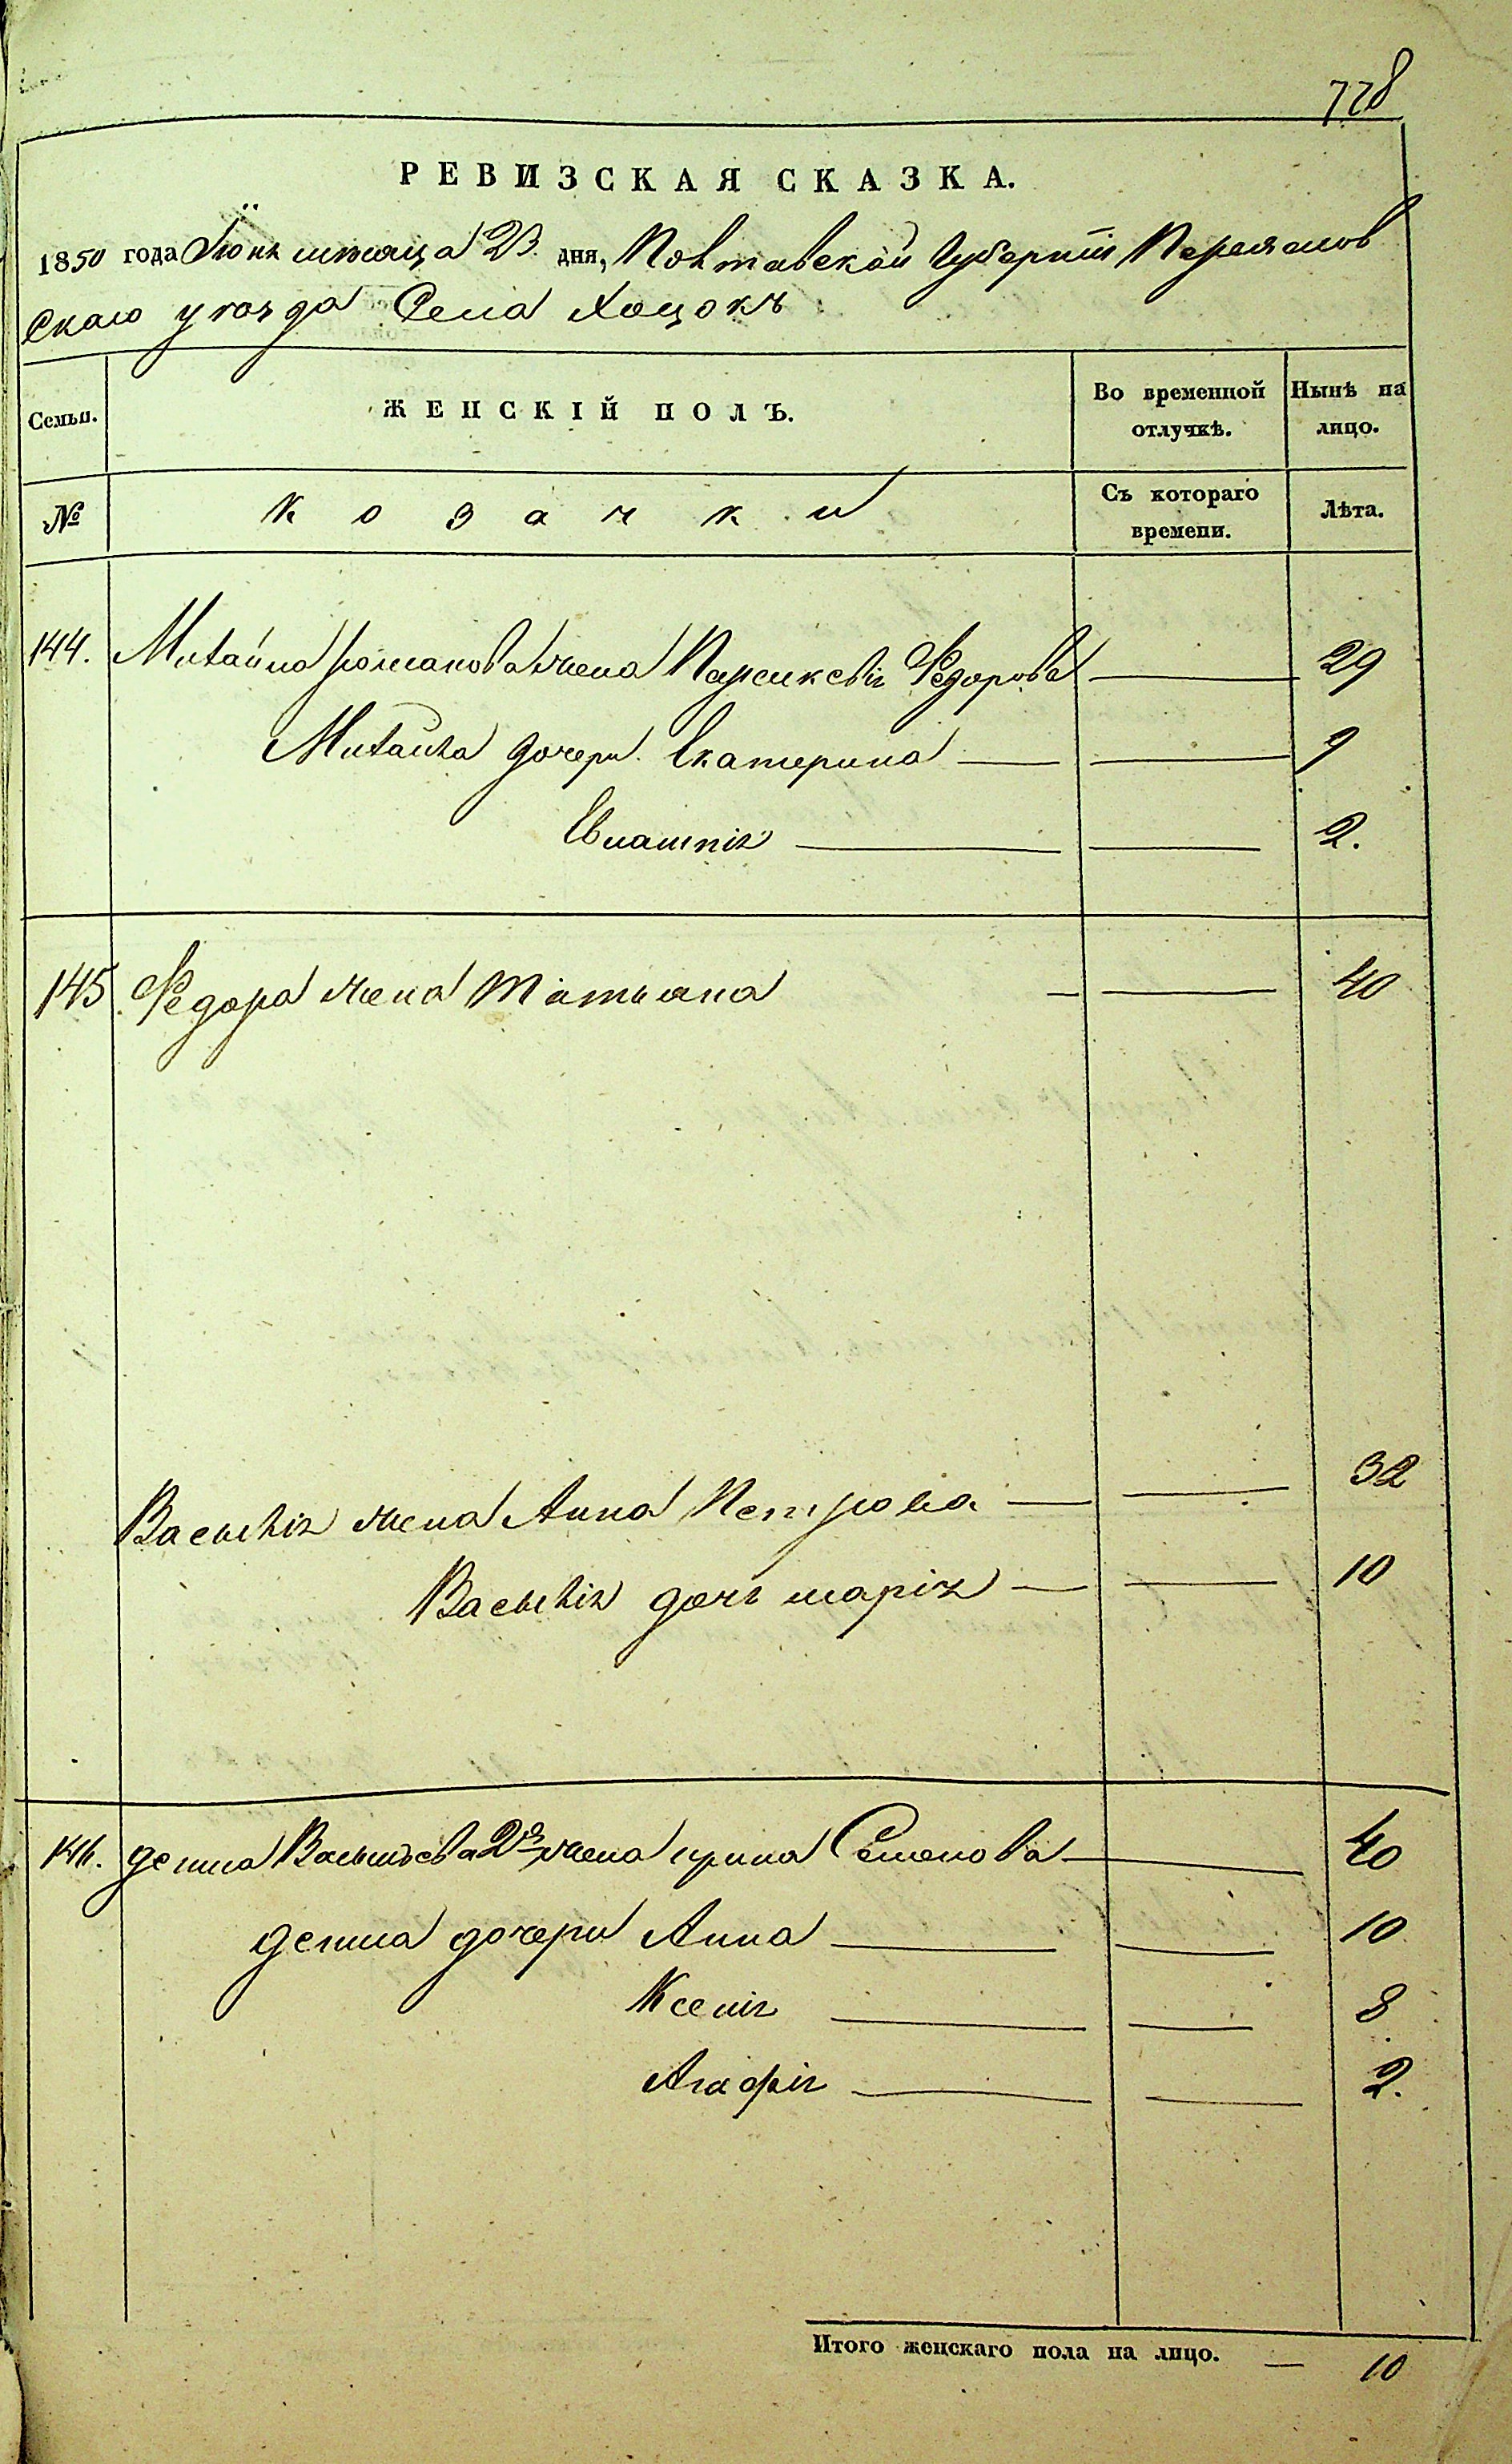 778
РЕВИЗСКАЯ СКАЗКА.
1850 года Іюня мѣсяца 23 дня, Полтавской Губерніи Переяслов
скаго уѣзда Села Хоцокъ
Семьи.
ЖЕНСКІЙ ПОЛЪ.
Во временной отлучкѣ.
Нынѣ на лицо.
№
Козачки
Съ котораго времени.
Лѣта.
144. Михайла Романова жена Параскевія Федорова 29
Михайла дочери Екатерина 9
Евлампія 2.
145. Федора жена Татьяна 40
Василія жена Анна Петрова 32
Василія дочь Марія 10
146. Демида Васильева 2я жена Ирина Семенова 40
дочери Анна 10
Ксенія 8
Агафія 2.
Итого женскаго пола на лицо. — 10